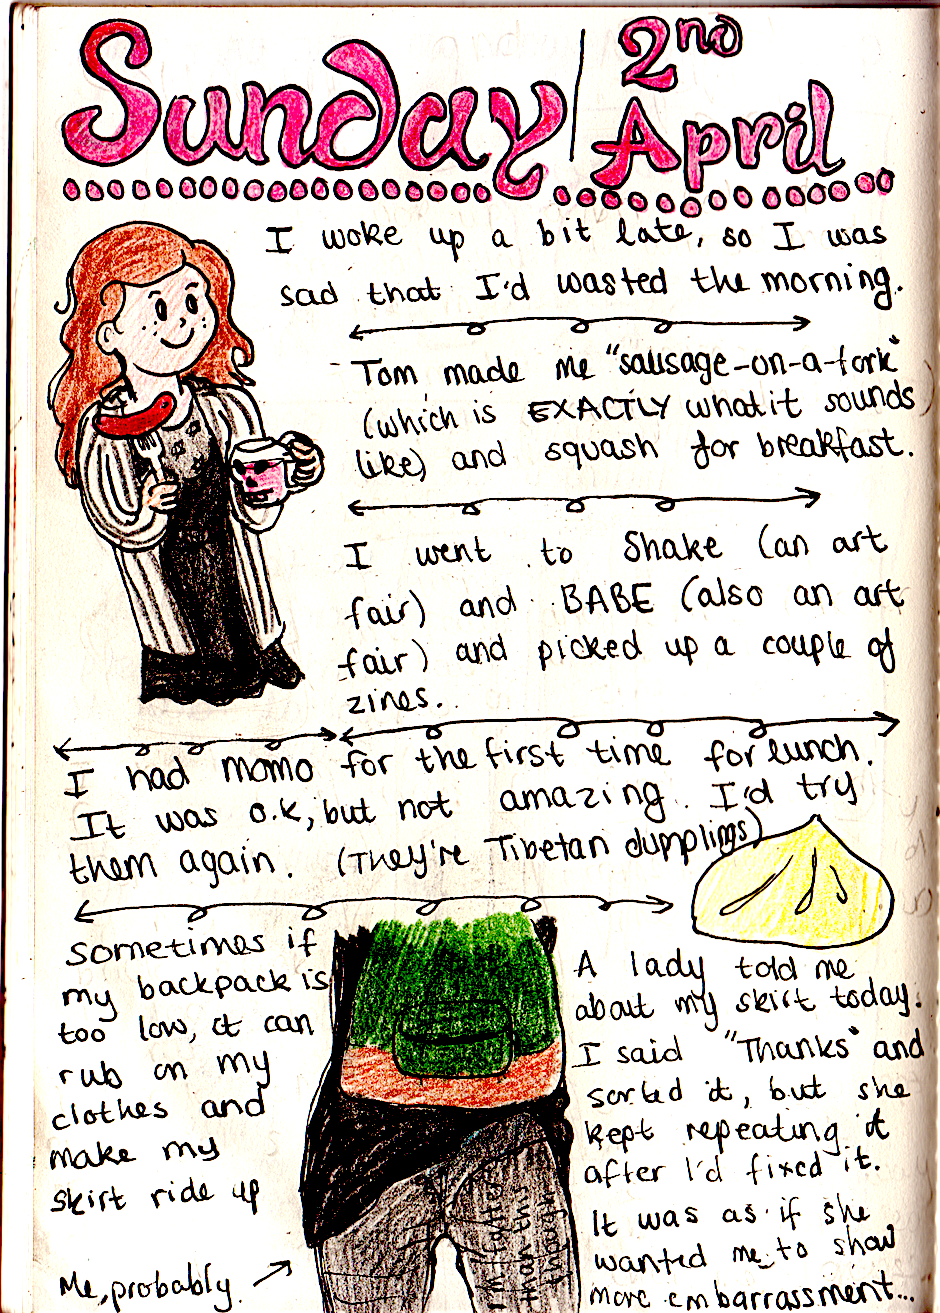 Sunday
2nd
April
I woke up a bit late, so I was
sad that I'd wasted the morning.
Tom made me "sausage-on-a-fork"
(which is EXACTLY what it sounds
like) and squash for breakfast.
I went to Shake (an art
fair) and BABE (also an art
fair) and picked up a couple of
zines.
I had momo for the first time for lunch.
It was o.k, but not amazing. I'd try
them again. (They're Tibetan dumplings)
Sometimes if
my backpack is
too low, it can
rub on my
clothes and
make my
skirt ride up
Me, probably.
I'm fatter
than this
though
A lady told me
about my skirt today.
I said "Thanks" and
sorted it, but she
kept repeating it
after I'd fixed it.
It was as if she
wanted me to show
more embarrassment...